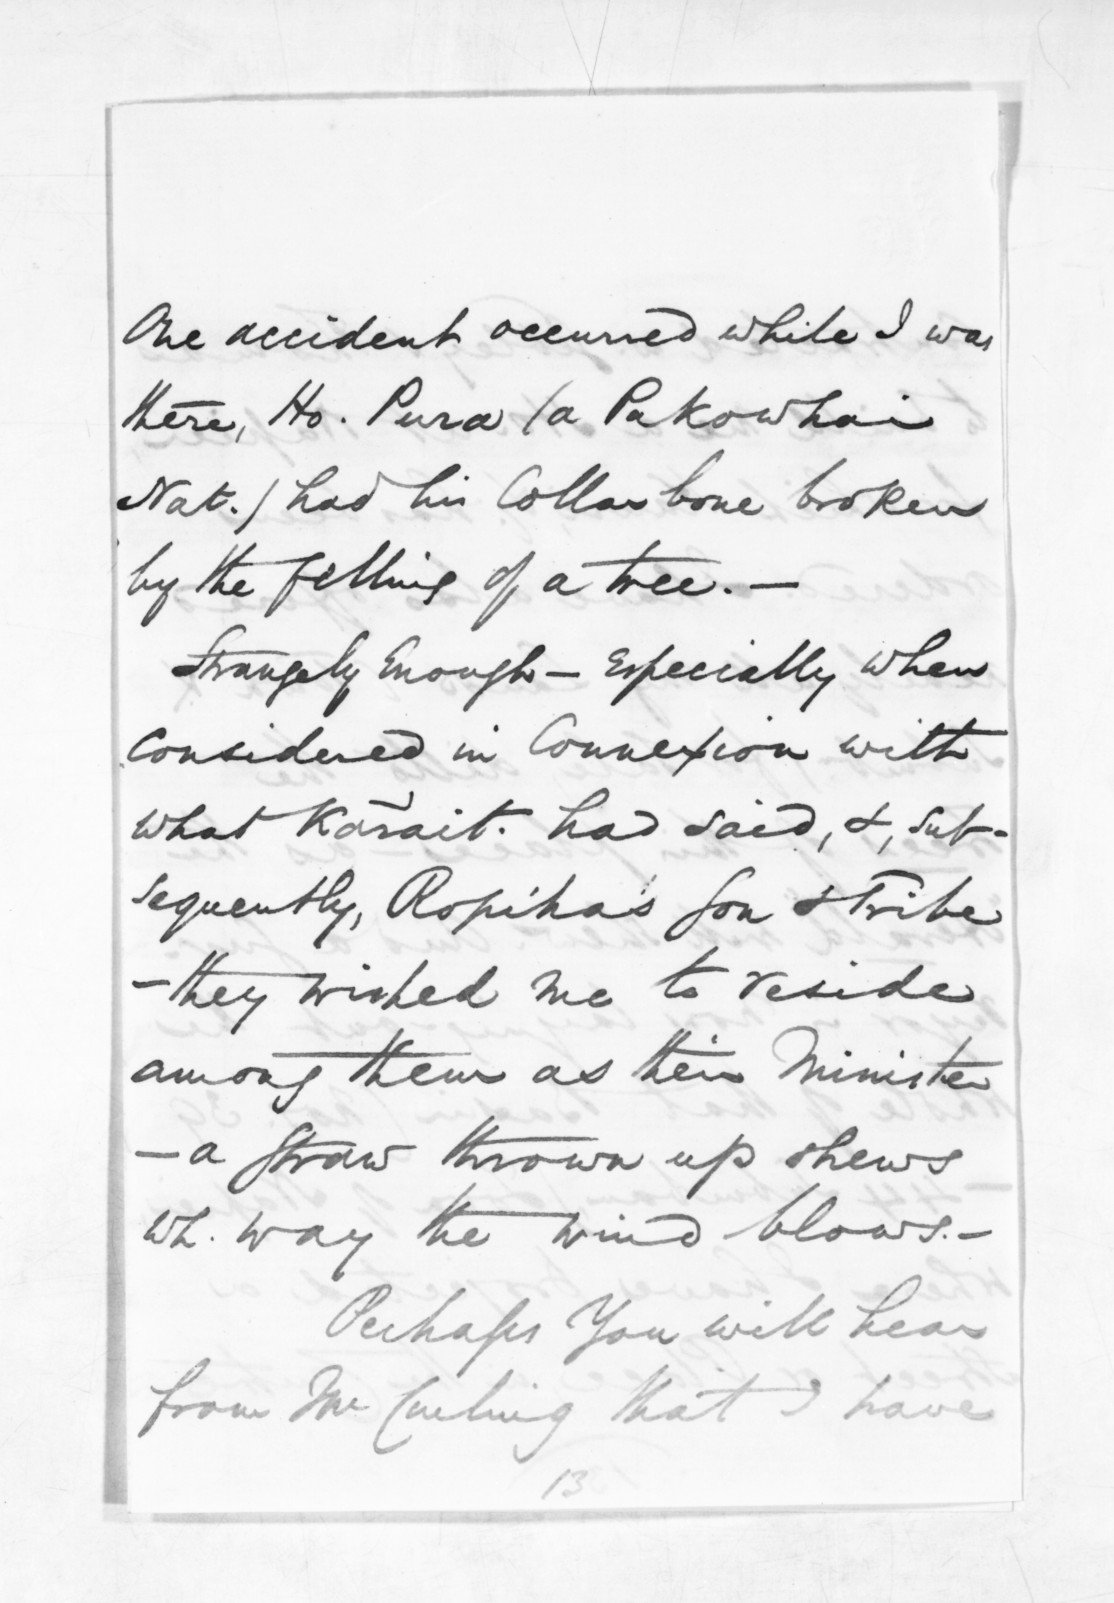 One accident occurred while I was
there, Ho. Pura (a Pakowhai
Nat.) had his Collar bone broken
by the felling of a tree. —
Strangely Enough — especially when
considered in Connexion with
what Karait. had said, &, sub-
sequently, Ropiha's son & Tribe
— they wished me to reside
among them as their Minister
— a straw thrown up shews
wh. way the wind blows. —
Perhaps You will hear
from Mr Curling that I have
13